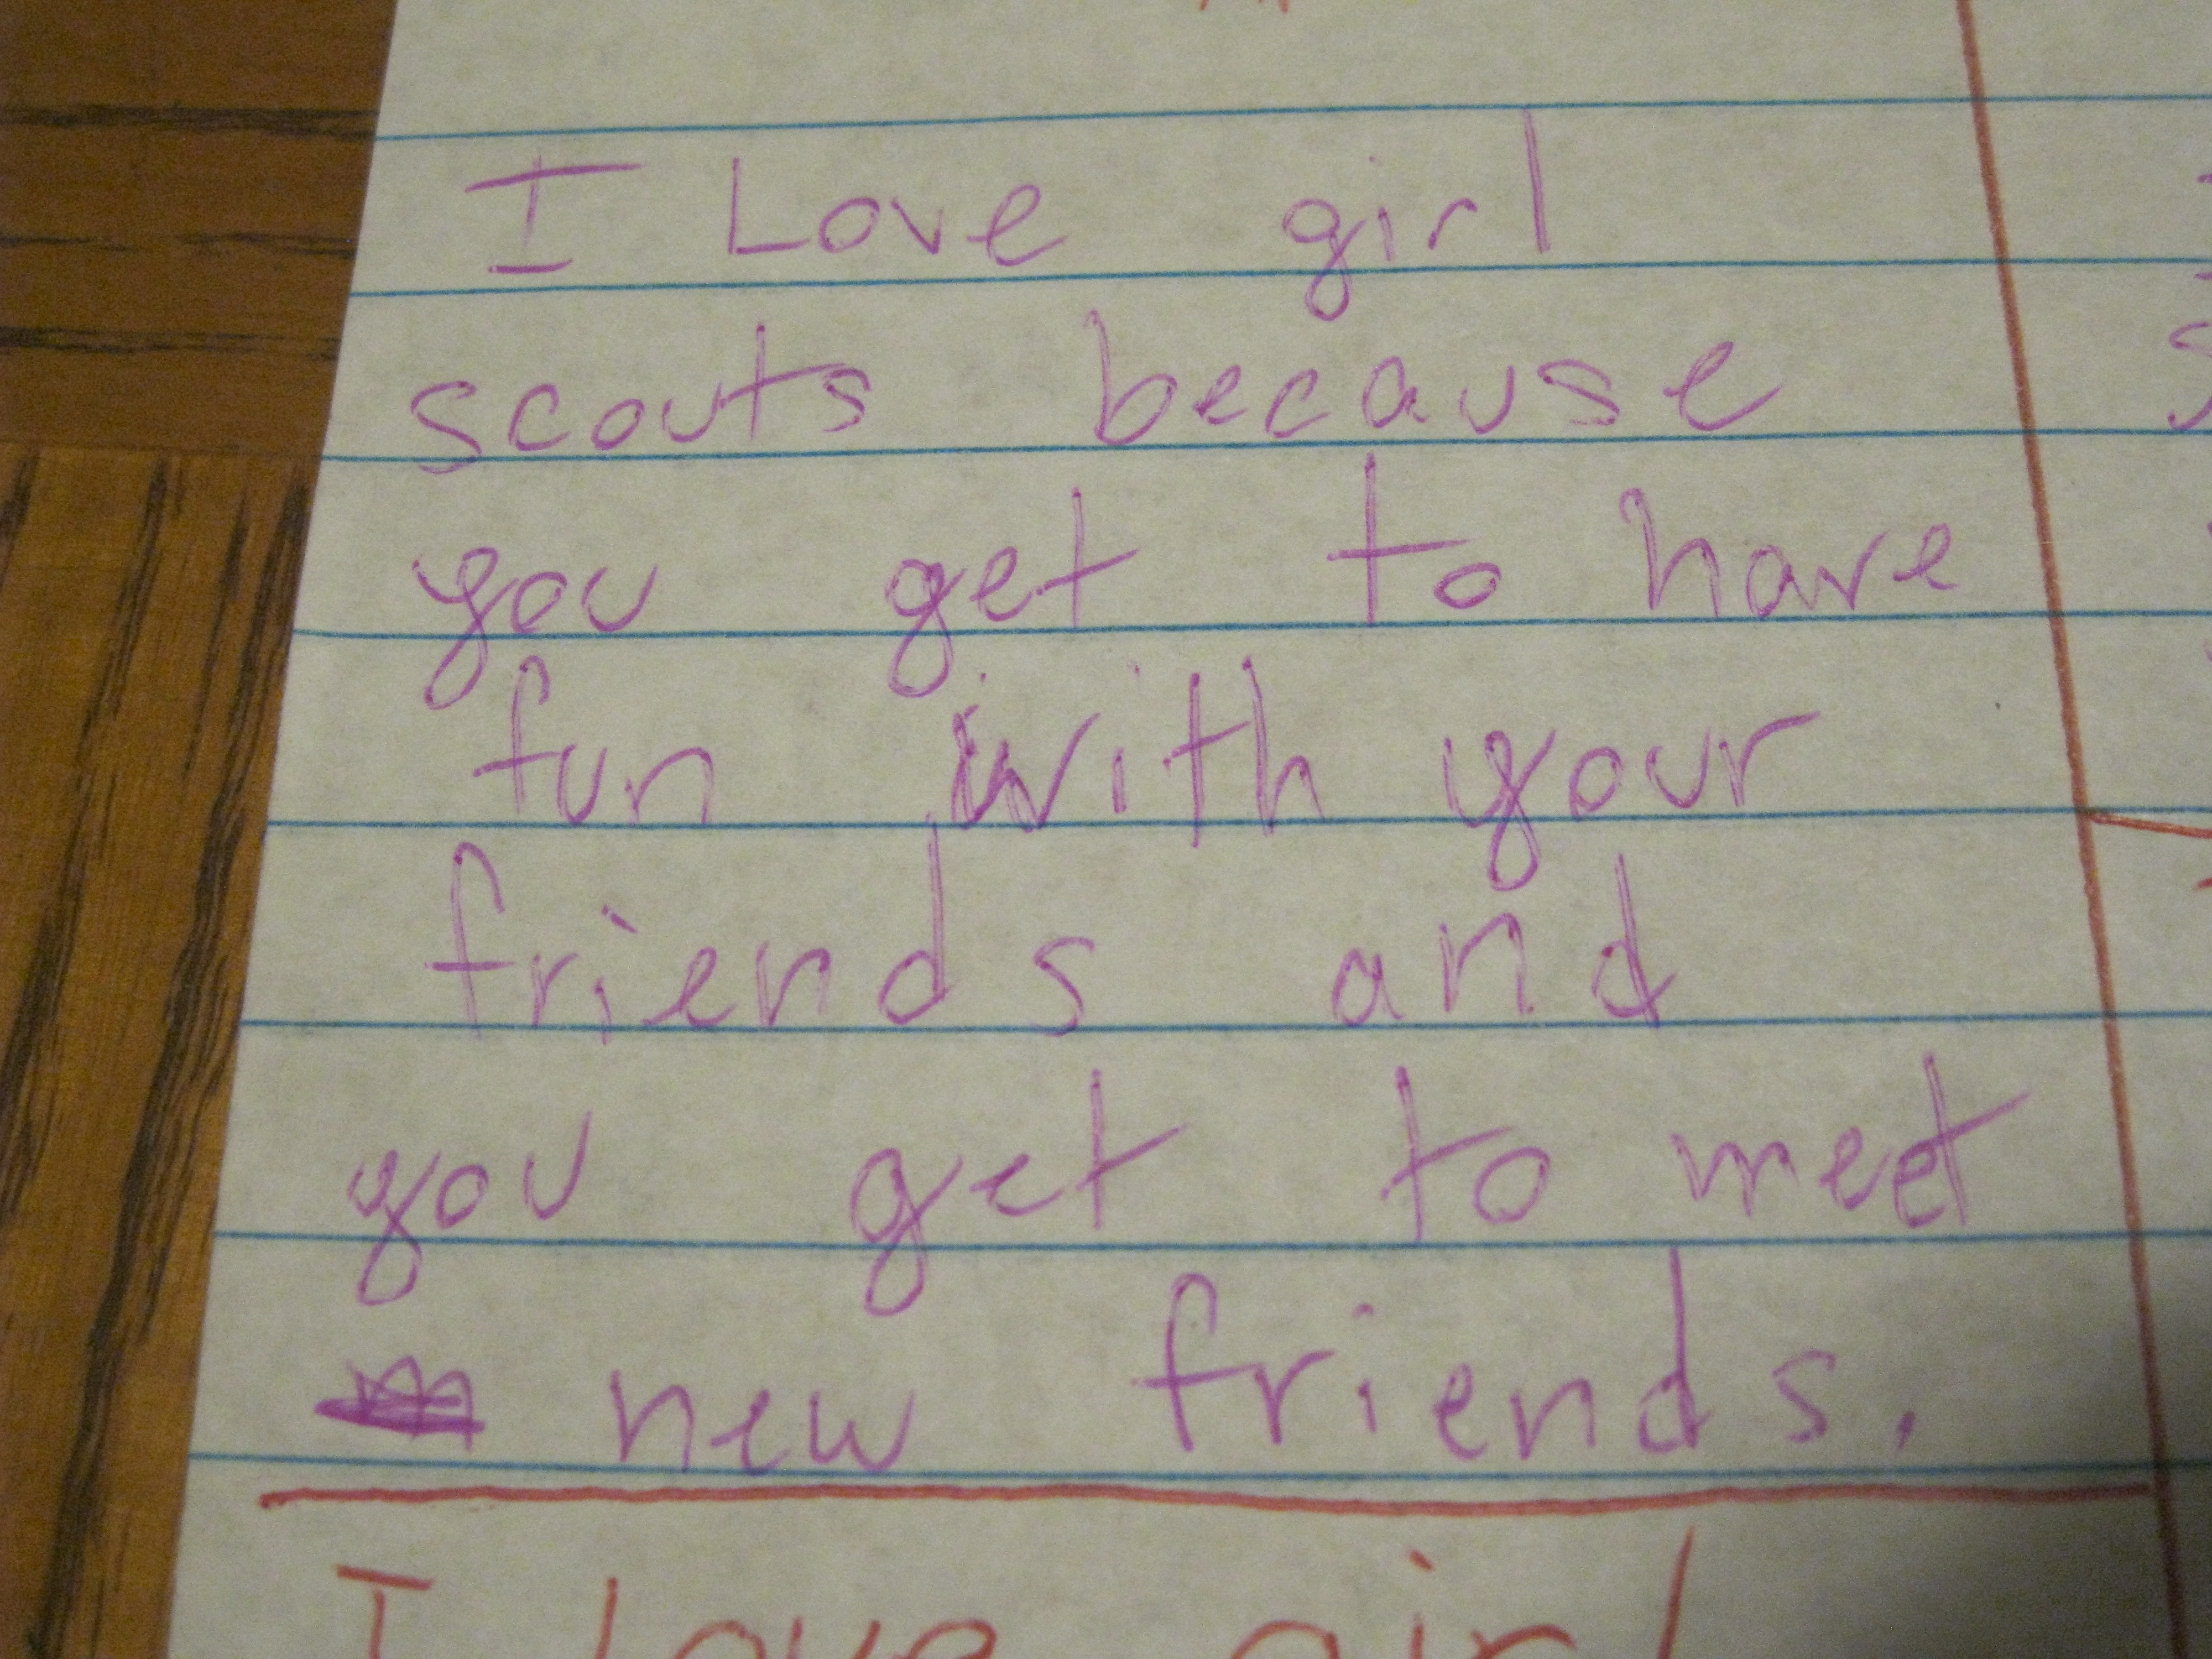 I Love girl
scouts because
you get to have
fun with your
friends and
you get to meet
new friends.
I love girl